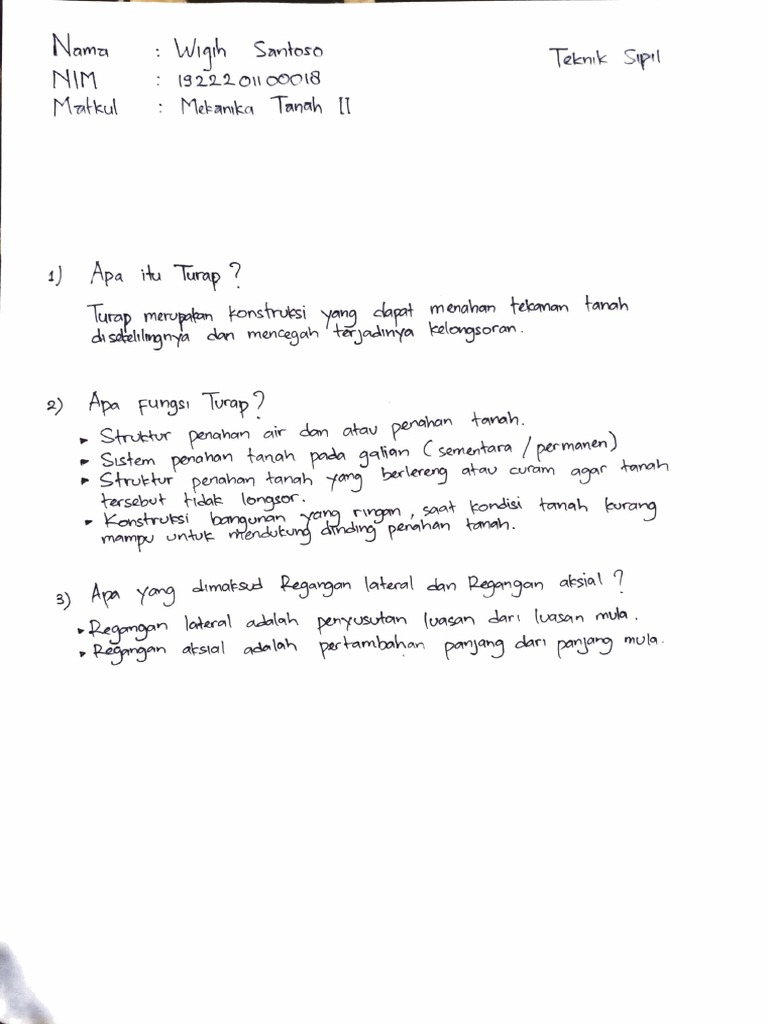 Nama : Wigih Santoso
Teknik Sipil
NIM : 1922201100018
Matkul : Mekanika Tanah II
1) Apa itu Turap?
Turap merupakan konstruksi yang dapat menahan tekanan tanah
disekelilingnya dan mencegah terjadinya kelongsoran.
2) Apa Fungsi Turap?
► Struktur penahan air dan atau penahan tanah.
► Sistem penahan tanah pada galian (sementara / permanen)
► Struktur penahan tanah yang berlereng atau curam agar tanah
tersebut tidak longsor.
► Konstruksi bangunan yang ringan, saat kondisi tanah kurang
mampu untuk mendukung dinding penahan tanah.
3) Apa yang dimaksud Regangan lateral dan Regangan aksial?
► Regangan lateral adalah penyusutan luasan dari luasan mula.
► Regangan aksial adalah pertambahan panjang dari panjang mula.